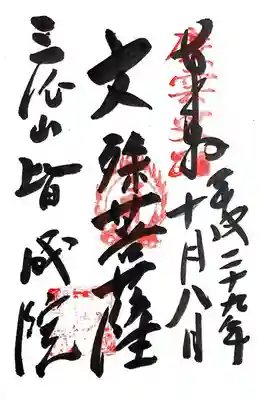 奉拝
平成二十九年
十月八日
文殊菩薩
三徳山皆成院